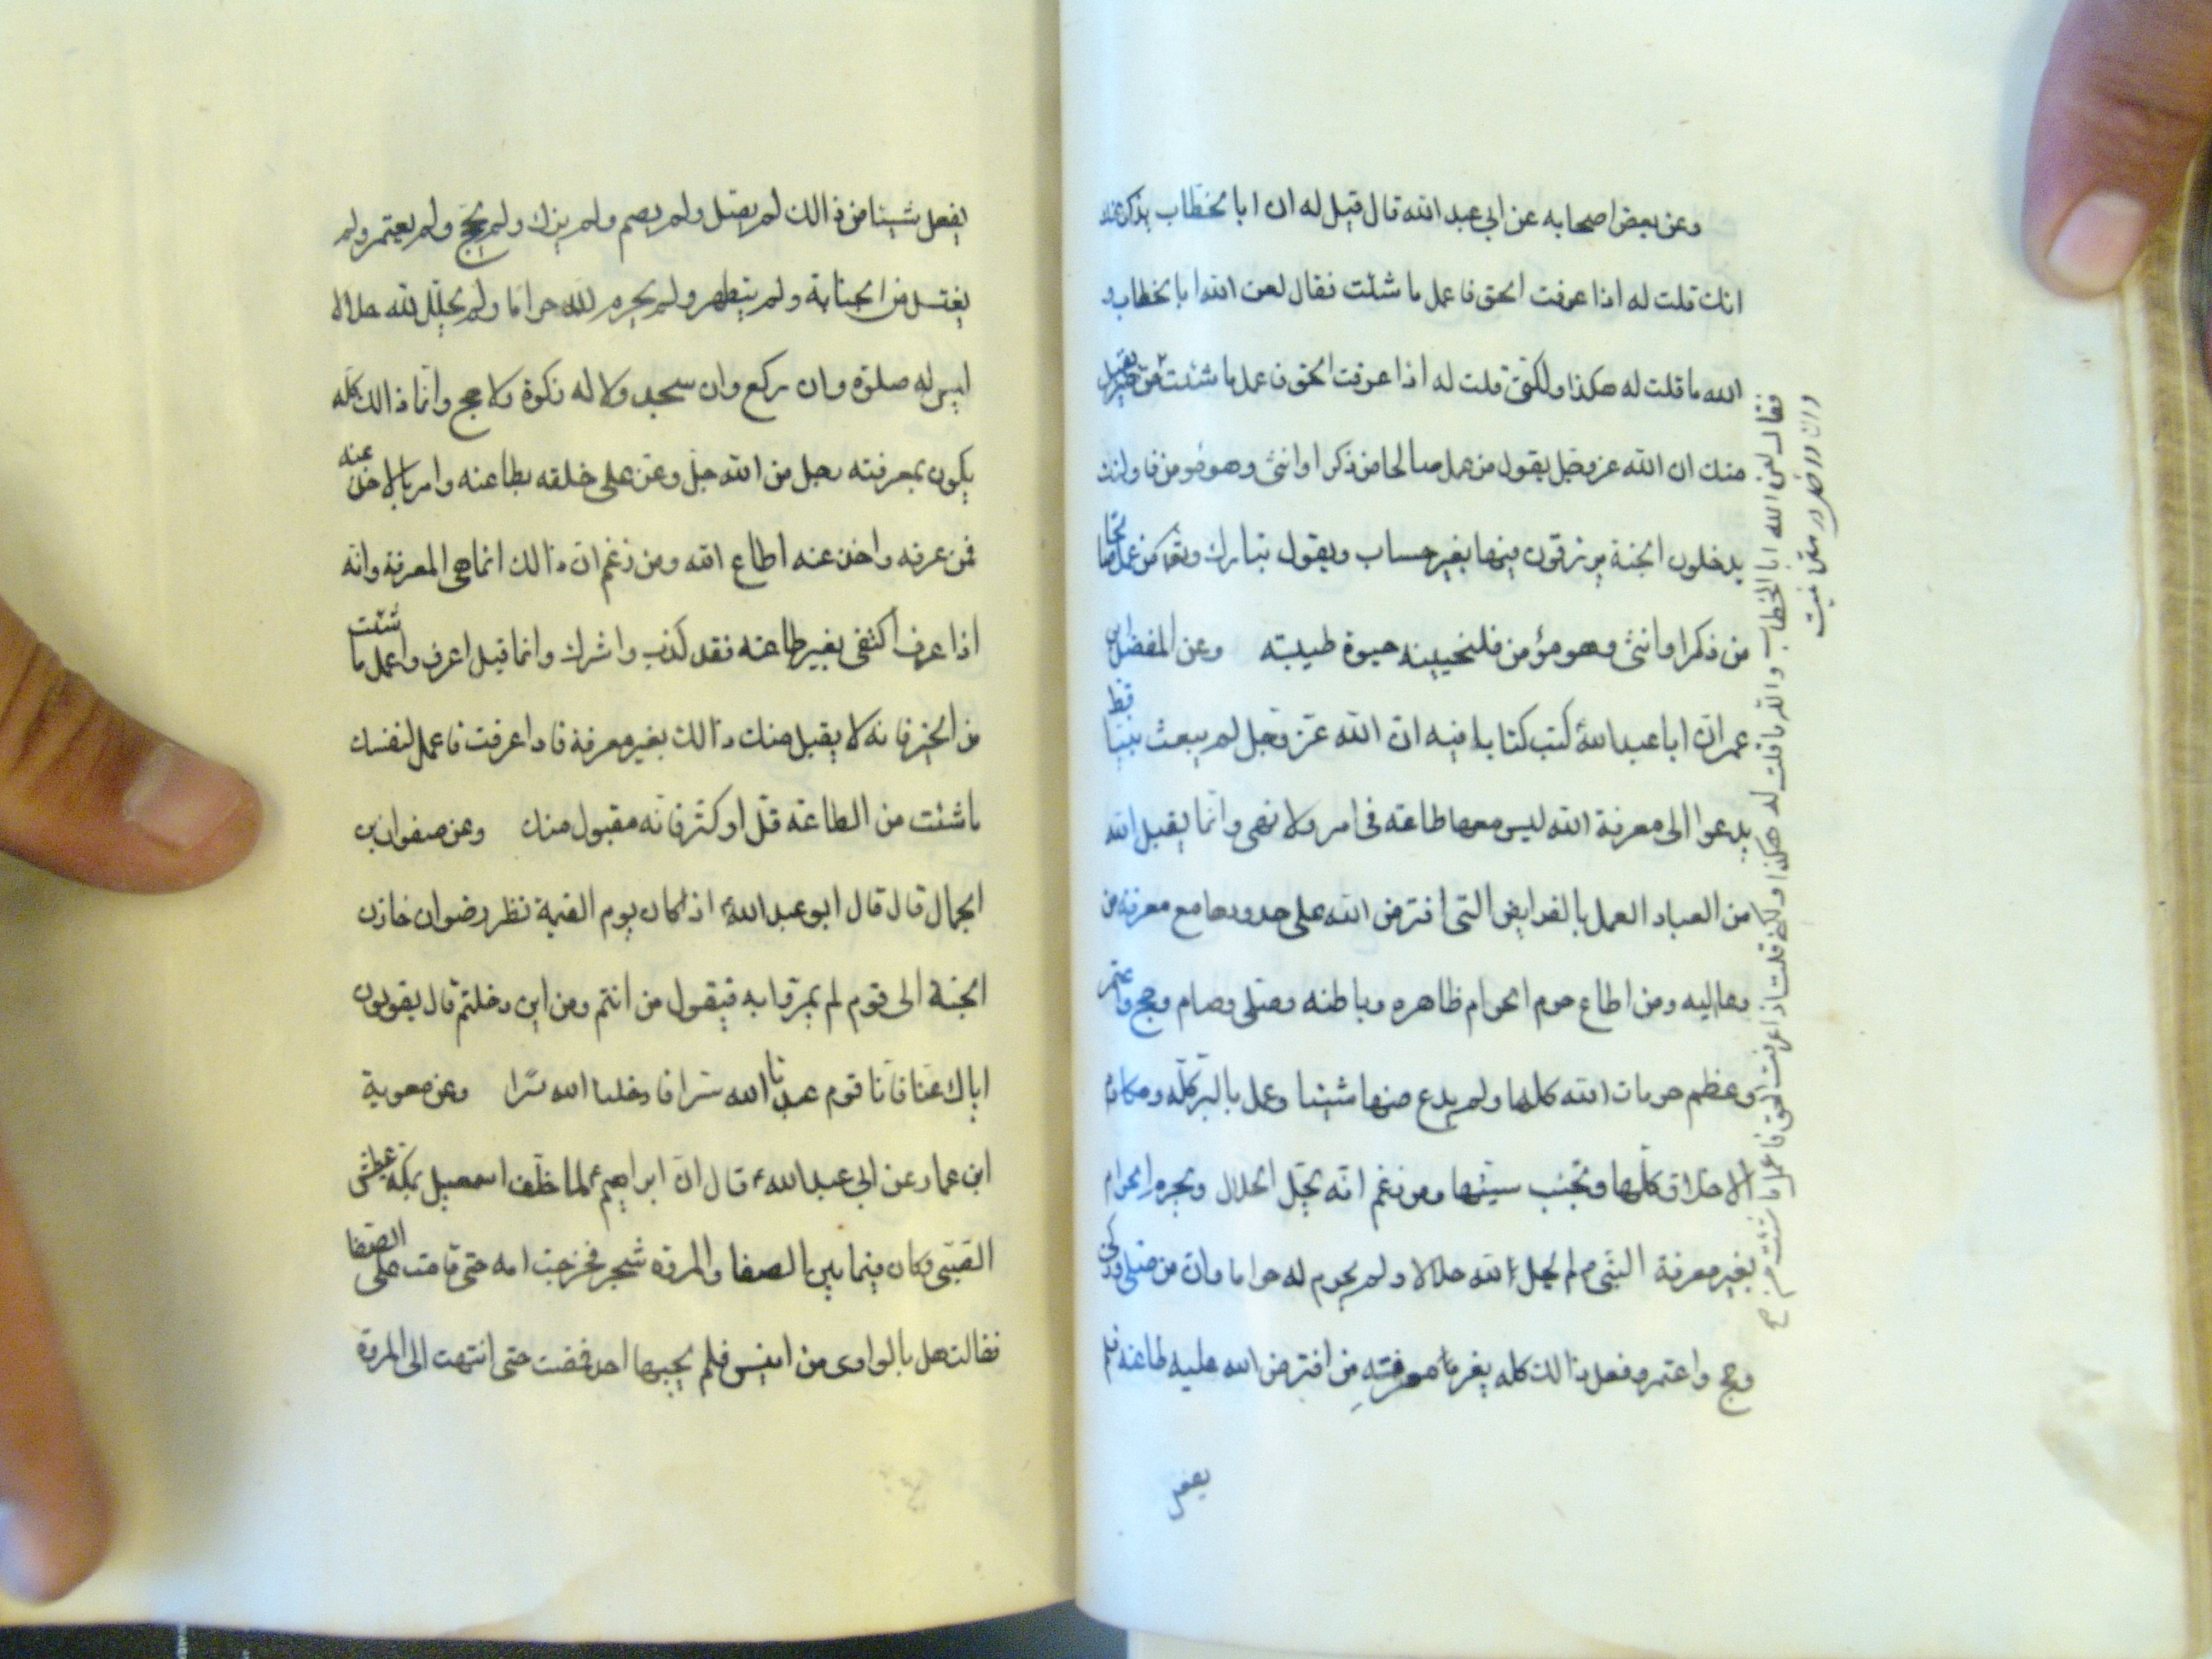 وعن بعض اصحابه عن ابي عبد الله قال قيل له ان ابا الخطاب يذكر عنك
انك قلت له اذا عرفت الحق فاعمل ما شئت فقال لعن الله ابا الخطاب و
الله ما قلت له هكذا ولكنى قلت له اذا عرفت الحق فاعمل ما شئت من خير يقبل
منك ان الله عز وجل يقول من عمل صالحا من ذكر او انثى وهو مؤمن فاولئك
يدخلون الجنة يرزقون فيها بغير حساب ويقول تبارك وتعا من عمل صالحا
من ذكر او انثى وهو مؤمن فلنحيينه حيوة طيبة وعن المفضل بن
عمر ان ابا عبد الله كتب كتابا فيه ان الله عز وجل لم يبعث نبيا قط
يدعوا الى معرفة الله ليس معها طاعة فى امر ولا نهى وانما يقبل الله
من العباد العمل بالفرايض التى افترض الله على حدودها مع معرفة من
دعا اليه ومن اطاع حرم الحرام ظاهره وباطنه وصلى وصام وحج واعتمر
وعظم حرمات الله كلها ولم يدع منها شيئا وعمل بالبر كله ومكارم
الاخلاق كلها وتجنب سيئها ومن زعم انه يحل الحلال ويحرم الحرام
بغير معرفة النبى لم يحل لله حلالا ولم يحرم له حراما وان من صلى وزكى
وحج واعتمر وفعل ذالك كله بغير معرفته من افترض الله عليه طاعته فلم
يفعل
فقال لعن الله ابا الخطاب والله ما قلت له هكذا ولكنى قلت اذا عرفت الحق فاعمل ما شئت
يفعل شيئا من ذالك لم يصل ولم يصم ولم يزك ولم يحج ولم يعتمر ولم
يغتسل من الجنابة ولم يتطهر ولم يحرم لله حراما ولم يحلل لله حلالا
ليس له صلوة وان ركع وان سجد ولا له زكوة ولا حج وانما ذالك كله
يكون بمعرفته رجل من الله جل وعز على خلقه بطاعته وامر بالاخذ عنه
فمن عرفه واخذ عنه اطاع الله ومن زعم ان ذالك انما هى المعرفة وانه
اذا عرف اكتفى بغير طاعته فقد كذب واشرك وانما قيل اعرف واعمل ما شئت
من الخير فانه لا يقبل منك ذالك بغير معرفة فاذا عرفت فاعمل لنفسك
ما شئت من الطاعة قل او كثر فانه مقبول منك وعن صفوان بن
الجمال قال قال ابو عبد الله اذا كان يوم القيمة نظر رضوان خازن
الجنة الى قوم لم يمروا به فيقول من انتم ومن اين دخلتم قال يقولون
اياك عنا فانا قوم عبدنا الله سرا فادخلنا الله سرا وعن معوية
ابن عمار عن ابي عبد الله قال ان ابراهيم لما خلف اسمعيل بمكة عطش
الصبى وكان فيما بين الصفا والمروة شجر فخرجت امه حتى قامت على الصفا
فقالت هل بالوادى من انيس فلم يجبها احد فمضت حتى انتهت الى المروة